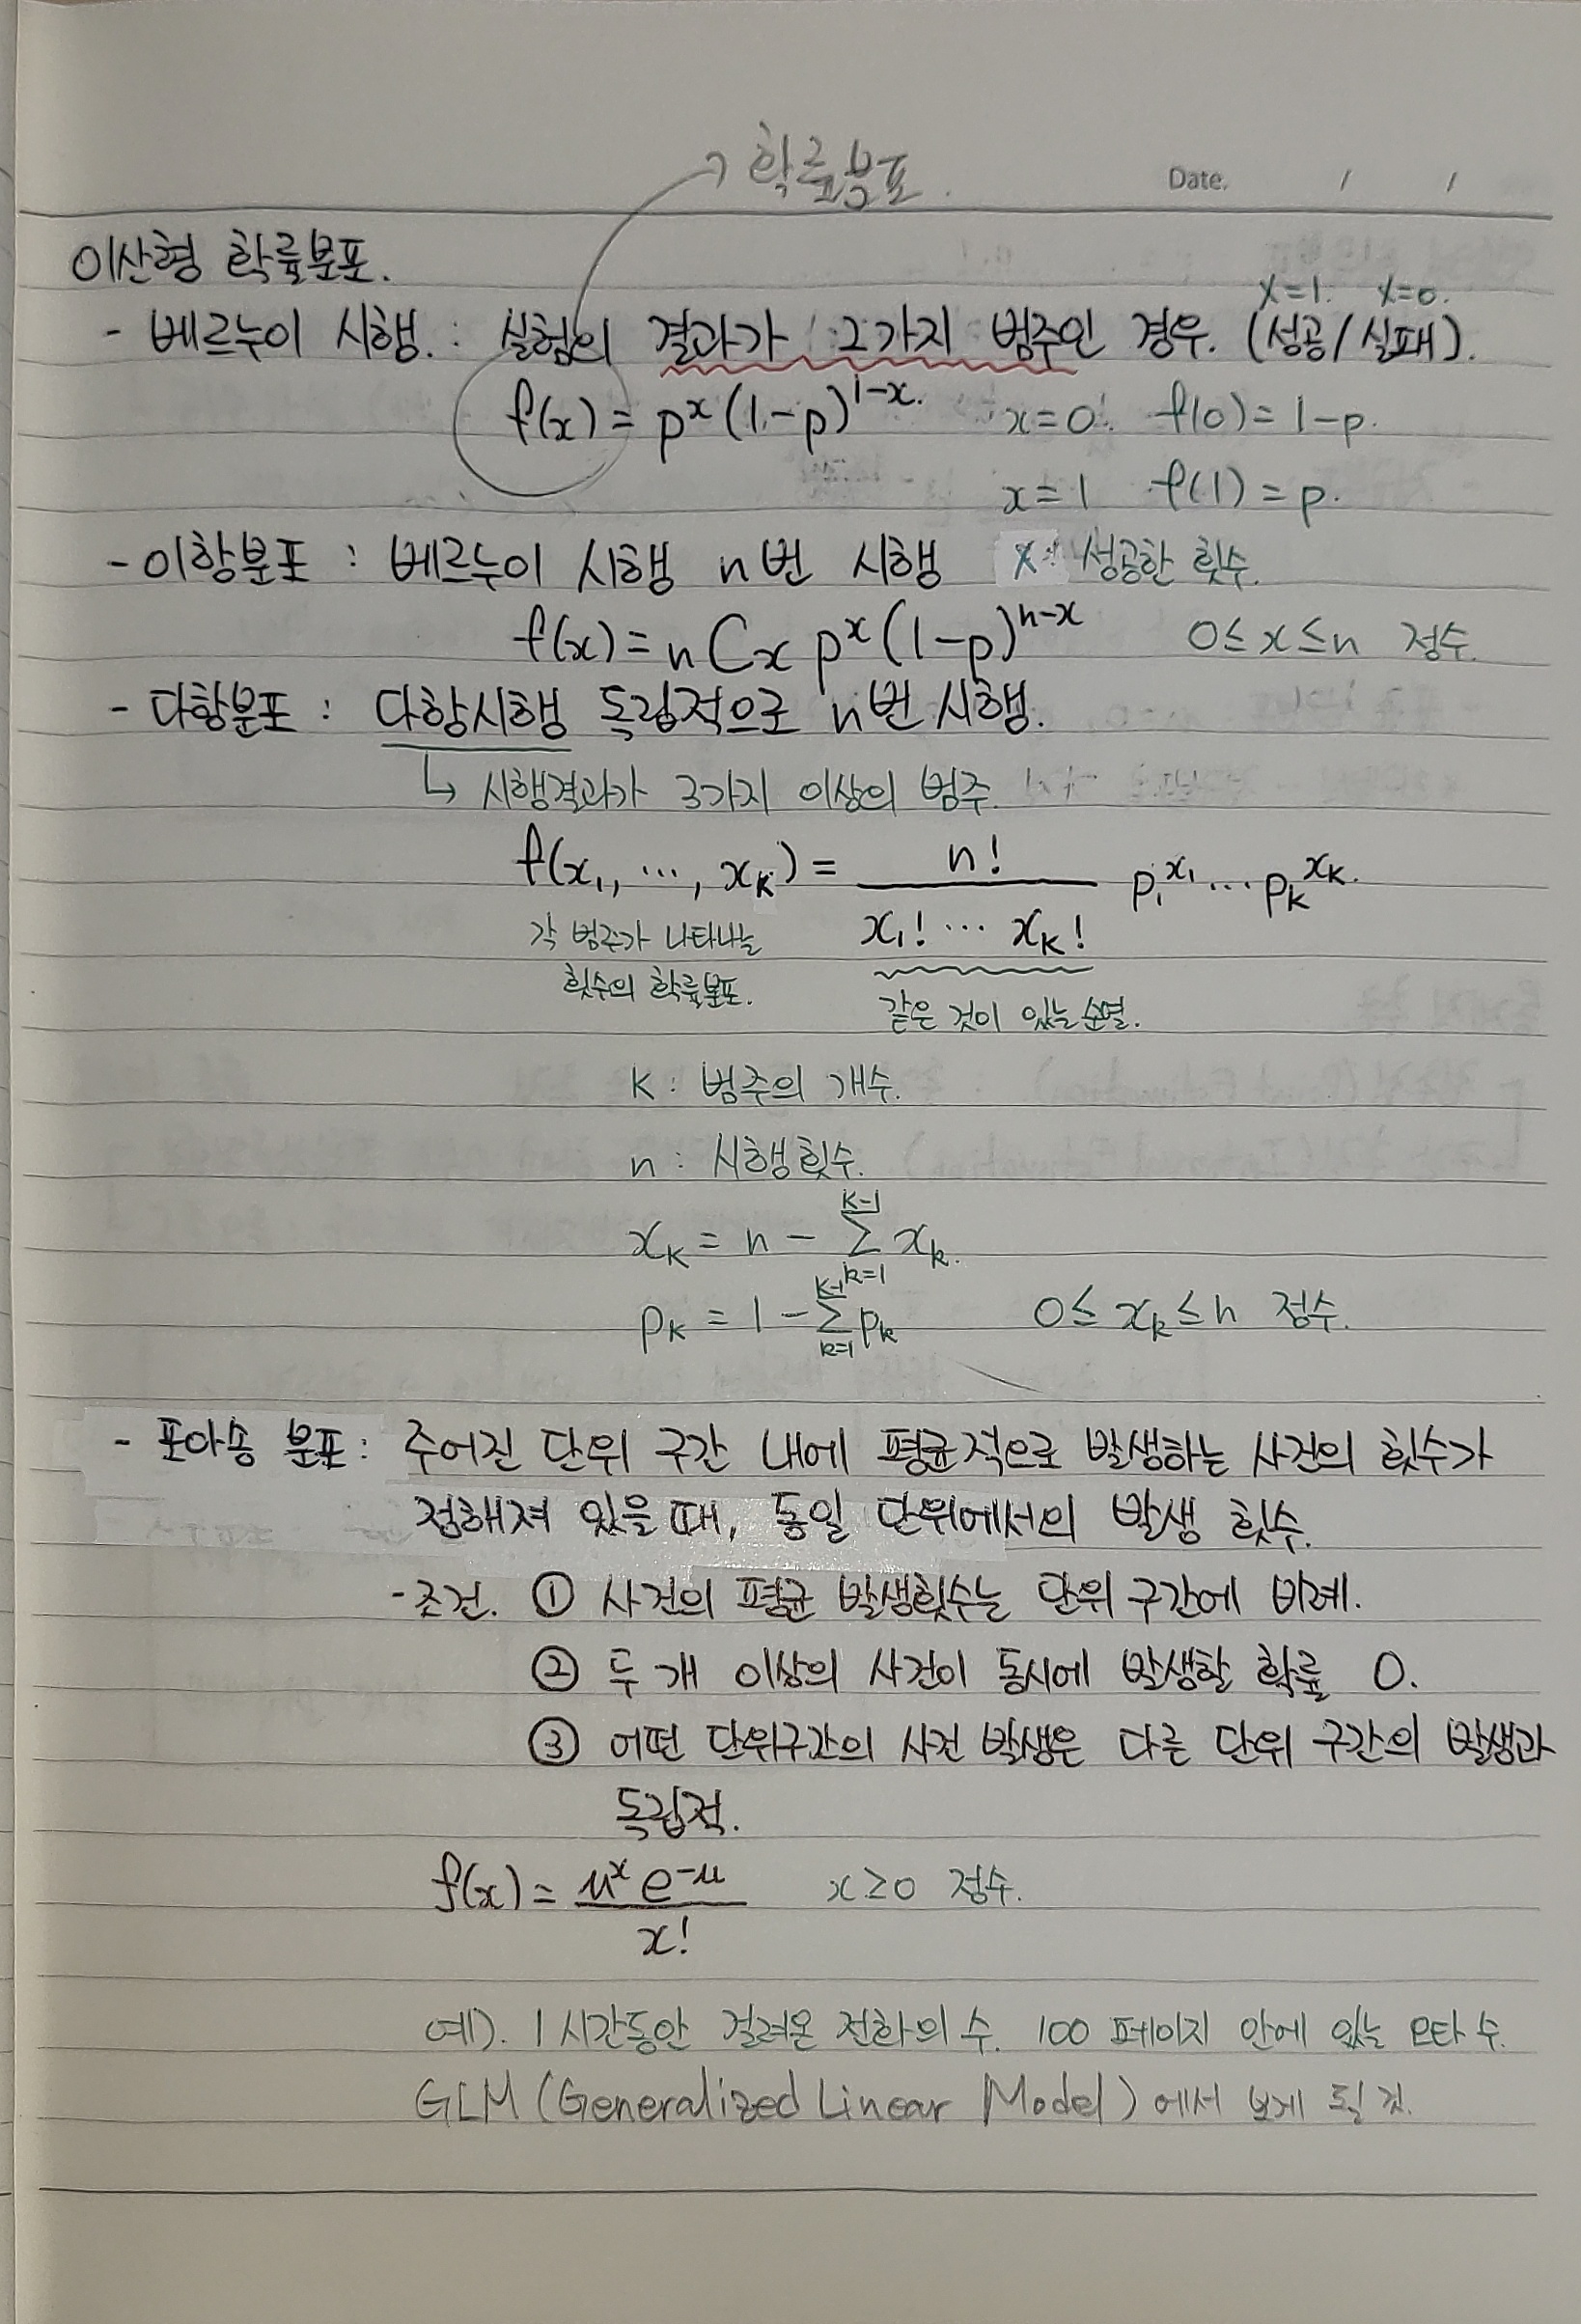 확률분포.
Date. / /
이산형 확률분포.
X=1. X=0.
- 베르누이 시행. : 실험의 결과가 2가지 범주인 경우. (성공/실패).
f(x) = p^x (1-p)^{1-x}. x=0. f(0) = 1-p.
x=1 f(1) = p.
- 이항분포 : 베르누이 시행 n번 시행 X: 성공한 횟수.
f(x) = nCx p^x (1-p)^{n-x} 0≤x≤n 정수.
- 다항분포 : 다항시행 독립적으로 n번 시행.
↳ 시행결과가 3가지 이상의 범주.
f(x₁, ..., x_K) = n! / (x₁! ... x_K!) p₁^{x₁} ... p_K^{x_K}.
각 범주가 나타나는
횟수의 확률분포.
같은 것이 있는 순열.
K : 범주의 개수.
n : 시행횟수.
x_K = n - Σ_{k=1}^{K-1} x_k.
p_K = 1 - Σ_{k=1}^{K-1} p_k 0≤x_k≤n 정수.
- 포아송 분포 : 주어진 단위 구간 내에 평균적으로 발생하는 사건의 횟수가
정해져 있을 때, 동일 단위에서의 발생 횟수.
- 조건. ① 사건의 평균 발생횟수는 단위 구간에 비례.
② 두 개 이상의 사건이 동시에 발생할 확률 0.
③ 어떤 단위구간의 사건 발생은 다른 단위 구간의 발생과
독립적.
f(x) = μ^x e^{-μ} / x! x≥0 정수.
예). 1시간동안 걸려온 전화의 수. 100 페이지 안에 있는 오타 수.
GLM (Generalized Linear Model)에서 보게 될 것.